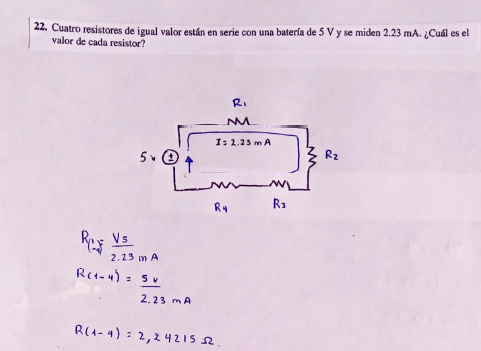 22. Cuatro resistores de igual valor están en serie con una batería de 5 V y se miden 2.23 mA. ¿Cuál es el
valor de cada resistor?
R1
I= 2.23 mA
5v
R2
R4
R3
R(1-4) = Vs
2.23 mA
R(1-4) = 5v
2.23 mA
R(1-4) = 2,24215 Ω.